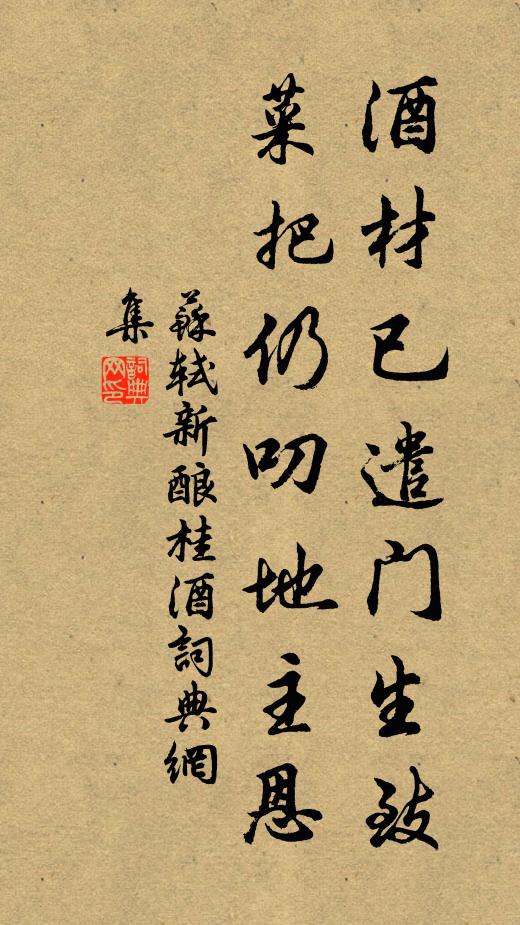 酒材已遣门生致
菜把仍叨地主恩
蘇轼新酿桂酒詞典網
集
詞典
网印